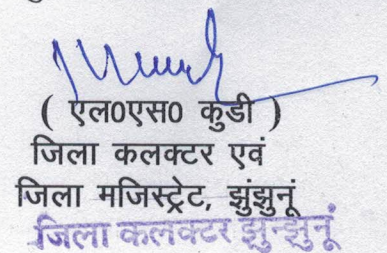 ( एल0एस0 कुडी )
जिला कलक्टर एवं
जिला मजिस्ट्रेट, झुंझुनूं
जिला कलक्टर झुन्झुनूं